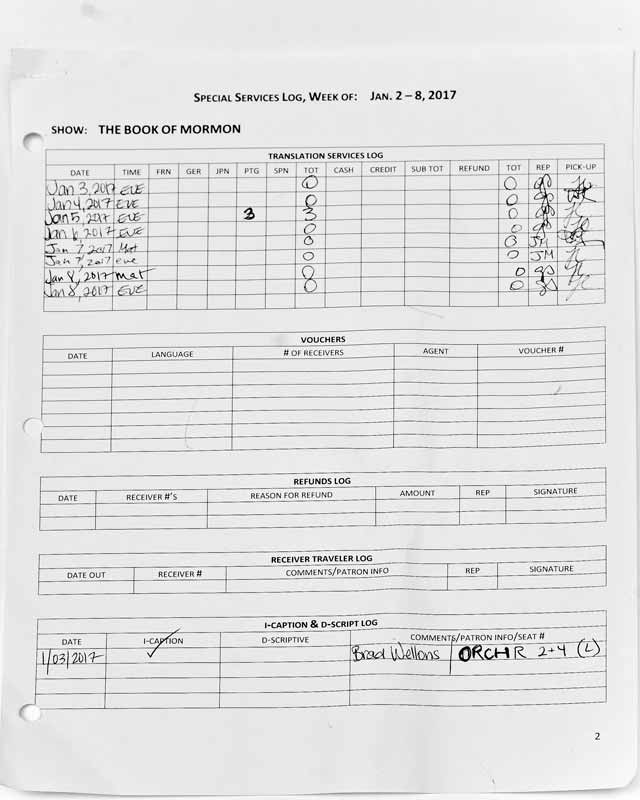 SPECIAL SERVICES LOG, WEEK OF: JAN. 2 – 8, 2017
SHOW: THE BOOK OF MORMON
TRANSLATION SERVICES LOG
DATE TIME FRN GER JPN PTG SPN TOT CASH CREDIT SUB TOT REFUND TOT REP PICK-UP
Jan 3, 2017 EVE 0 0
Jan 4, 2017 EVE 0 0
Jan 5, 2017 EVE 3 3 0
Jan 6, 2017 EVE 0 0
Jan 7 2017 Mat 0 0 JM
Jan 7, 2017 eve 0 0 JM
Jan 8, 2017 mat 0 0
Jan 8, 2017 EVE 0 0
VOUCHERS
DATE LANGUAGE # OF RECEIVERS AGENT VOUCHER #
REFUNDS LOG
DATE RECEIVER #'S REASON FOR REFUND AMOUNT REP SIGNATURE
RECEIVER TRAVELER LOG
DATE OUT RECEIVER # COMMENTS/PATRON INFO REP SIGNATURE
I-CAPTION & D-SCRIPT LOG
DATE I-CAPTION D-SCRIPTIVE COMMENTS/PATRON INFO/SEAT #
1/03/2017 ✓ Brad Wellons ORCH R 2+4 (L)
2